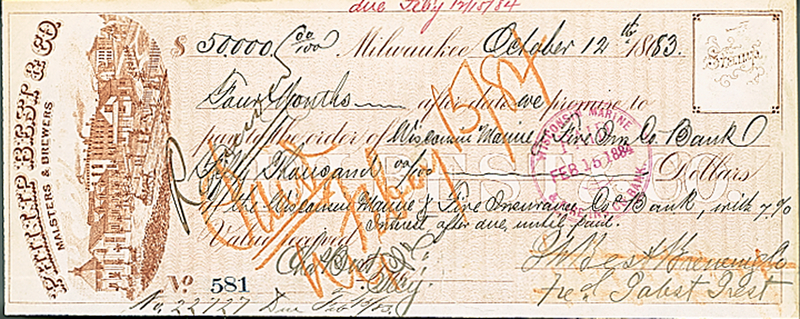 due Feby 12/15/84
PHILIP BEST & CO.
MALSTERS & BREWERS
$ 50.000 00/100 Milwaukee October 12th 1883.
Stamp
Four Months after date we promise to
pay to the order of Wisconsin Marine & Fire Ins Co. Bank
Fifty Thousand 00/100 Dollars
at the Wisconsin Marine & Fire Insurance Co Bank, with 7%
Value received Interest after due, until paid.
WISCONSIN MARINE
PAID
FEB 15 1884
& FIRE INS. CO. BANK
Paid
Feby 15/84
Chas Best Jr. Ph Best Brewing Co
Secy. Fred Pabst Prest
No 581
No. 22727 Due Feb 12/15